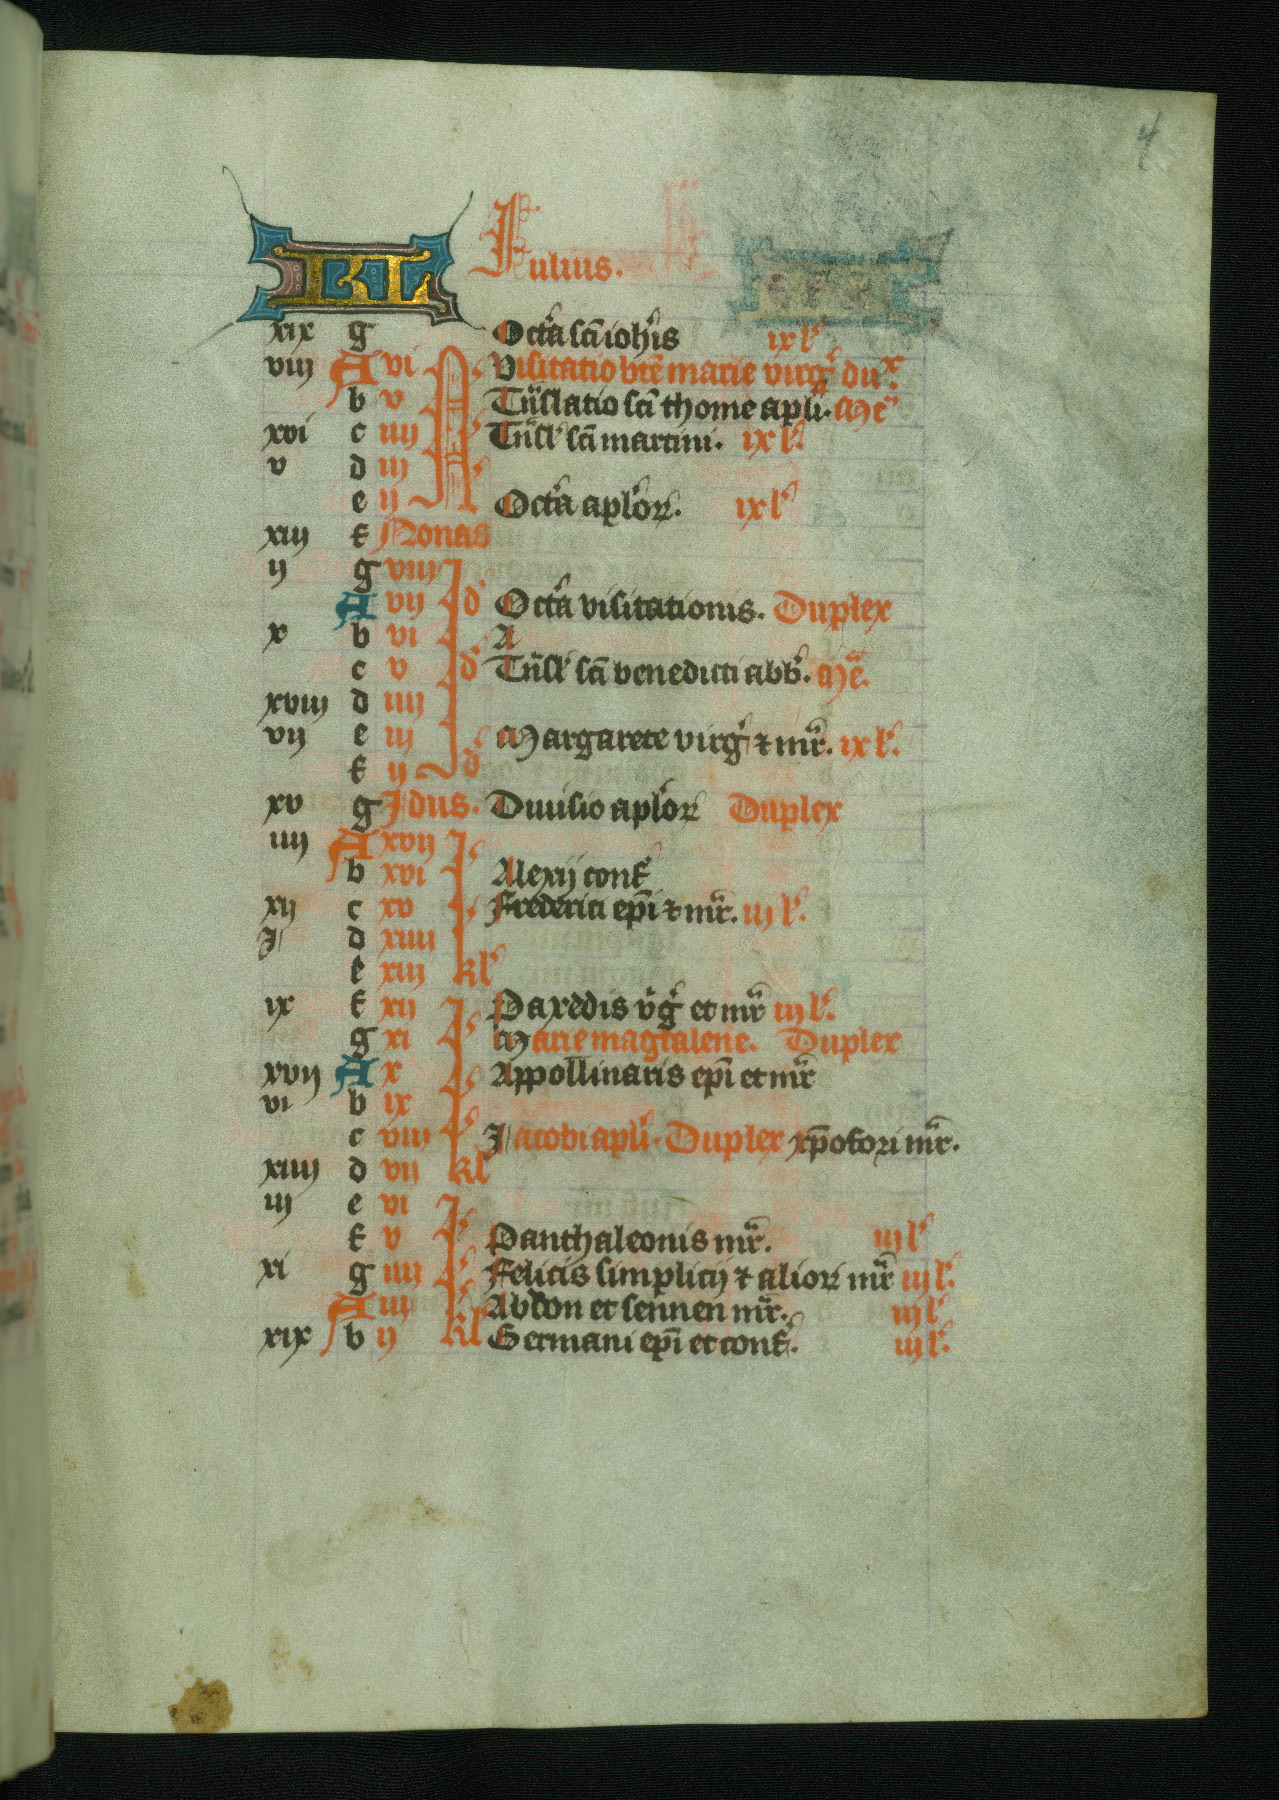 4
KL Julius.
xix g Octa̅ sc̅i ioh̅is ix l
viii A vi N Visitatio bt̅e marie virg̅ du x.
b v Tn̅slatio sc̅i thome apl̅i. me
xvi c iiii Tn̅sl sc̅i martini. ix l.
v d iii
e ii Octa̅ aplor̅. ix l
xiii f Nonas
ii g viii J
A vii d Octa̅ visitationis. Duplex
x b vi A
c v d Tn̅sl sc̅i benedicti abb. me̅.
xviii d iiii
vii e iii Margarete virg̅ et mr̅. ix l.
f ii d
xv g Jdus. Diuisio aplor̅ Duplex
iiii A xvii
b xvi Alexij conf
xii c xv Frederici ep̅i et mr̅. iii l.
J d xiiii
e xiii kl
ix f xii Paxedis v̅g̅ et mr̅ iii l.
g xi Marie magtalene. Duplex
xvii A x Appollinaris ep̅i et mr̅
vi b ix
c viii Jacobi apl̅i. Duplex xp̅ofori mr̅.
xiiii d vii kl
iii e vi
f v Panthaleonis mr̅. iii l
xi g iiii Felicis simplicij et alior̅ mr̅ iii l.
A iii Abdon et sennen mr̅. iii l
xix b ii kl Germani ep̅i et conf. iii l.